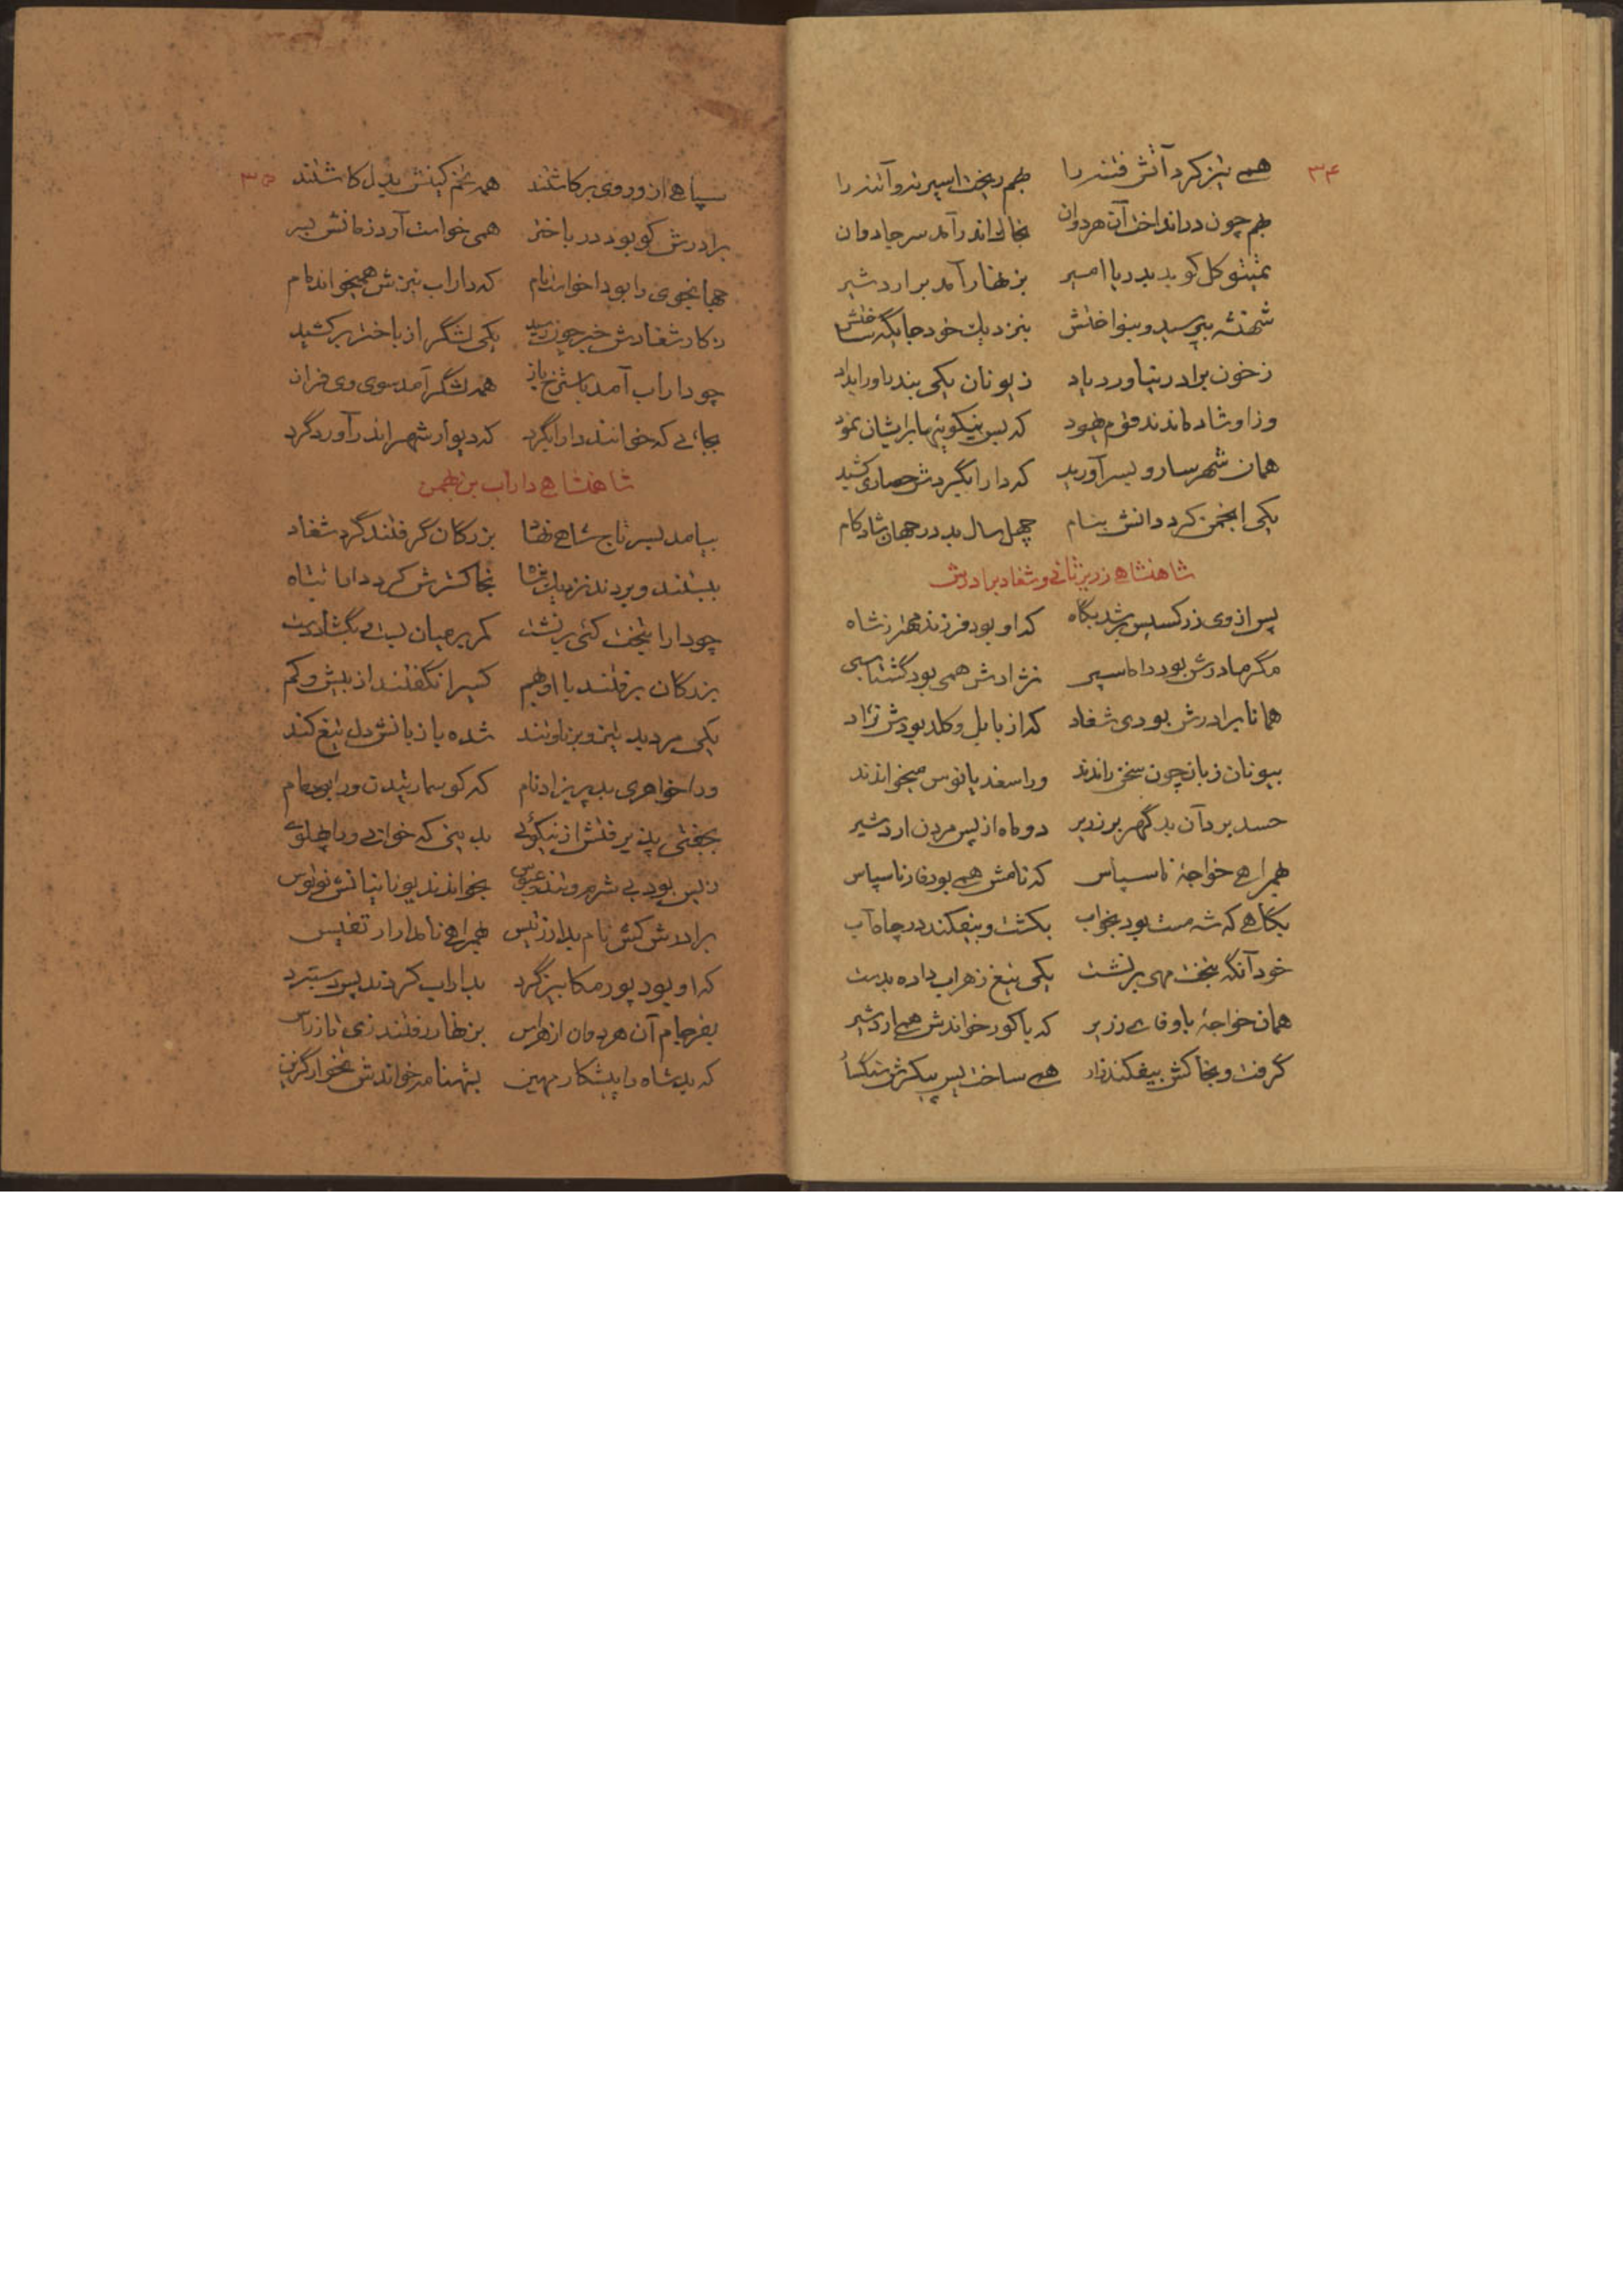 ۳۴
همی تیز کرد آتش فتنه را بهم ریخت اسپرته و آتنه را
بهم چون در انداخت آن هردوان بخاک اندر آمد سر جادوان
تمیتوکل کو بد بدریا امیر بزنهار آمد بر اردشیر
شهنشه بپرسید و بنواختش بنزدیک خود جایگه ساختش
ز خون برادر نیاورد یاد ز یونان یکی بند باور ابداد
وزاو شاد ماندند قوم یهود که بس نیکوئیها برایشان نمود
همان شهر سارو بسر آورید که دارابگردش حصاری کشید
یکی انجمن کرد دانش بنام چهل سال بد در جهان شادکام
شاهنشاهی زریر ثانی و شغاد برادرش
پس از وی زرکسیس بر شد بگاه که او بود فرزند مهتر ز شاه
مگر مادرش بود داماسپی نژادش همی بود گشتاسپی
همانا برادرش بودی شغاد که از بابل و کلد بودش نژاد
بیونان زبان چون سخن راندند ورا سغدیانوس میخواندند
حسد برد آن بدگهر بر زریر دو ماه از پس مردن اردشیر
بهمراهی خواجهٔ ناسپاس که نامش همی بود فارناسپاس
بگاهی که شه مست بود بخواب بکشت و بیفکند در چاه آب
خود آنگه بتخت مهی برنشت یکی تیغ زهراب داده بدست
همان خواجهٔ باوفای زریر که باکور خواندش همی اردشیر
گرفت و بخاکش بیفکند زار همی ساخت پس پیکرش سنگسار
۳۵
سپاهی ازو روی برکاشتند همه تخم کینش بدل کاشتند
برادرش کو بود در باختر همی خواست آرد زمانش بسر
جهانجوی را بود اخوارنام که داراب نیزش همیخواند مام
ز کار شغادش خبر چون رسید یکی لشگر از باختر برکشید
چو داراب آمد باستخر باز همه لشگر آمد سوی وی فراز
بجائی که خوانند دارابگرد که دیوار شهر اندر آورد گرد
شاهنشاهی داراب بن بهمن
بیامد بسر تاج شاهی نهاد بزرگان گرفتند گرد شغاد
ببستند و بردند نزدیک شاه بخاکسترش کرد دارا تباه
چو دارا بتخت کئی برنشت کمر بر میان بست و بگشاد دست
بزرگان برفتند با او بهم کسیرا نگفتند از بیش و کم
یکی مرد بد تیز و برناوتند شده با زبانش دل تیغ کند
ورا خواهری بد پریزاد نام که کو سماریتیدت ورا بود مام
بجفتی پذیرفتش از نیکوئی بد بینی که خوانی ورا پهلوی
ز بس بود بی شرم و تند و عبوس بخواندند یونانیانش نوتوس
برادرش کش نام بد ارزتیس بهمراهی نامدار ارتفیس
که او بود پور مکابیزگرد بداراب کردند پس دستبرد
بفرجام آن هردوان از هراس بزنهار رفتند زی تازراس
که بد شاه را پیشکار مهین بشهنامه خواندش نخوارگزین